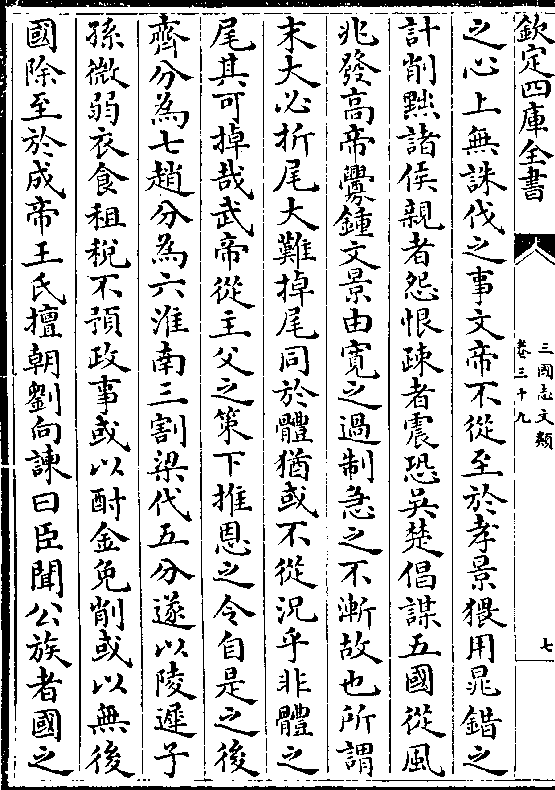 欽定四庫全書
三國志文類
卷三十九
七
之心上無誅伐之事文帝不從至於孝景猥用晁錯之
計削黜諸侯親者怨恨疎者震恐吳楚倡謀五國從風
兆發高帝釁鍾文景由寛之過制急之不漸故也所謂
末大必折尾大難掉尾同於體猶或不從況乎非體之
尾其可掉哉武帝從主父之策下推恩之令自是之後
齊分為七趙分為六淮南三割梁代五分遂以陵遲子
孫微弱衣食租稅不預政事或以酎金免削或以無後
國除至於成帝王氏擅朝劉向諫曰臣聞公族者國之